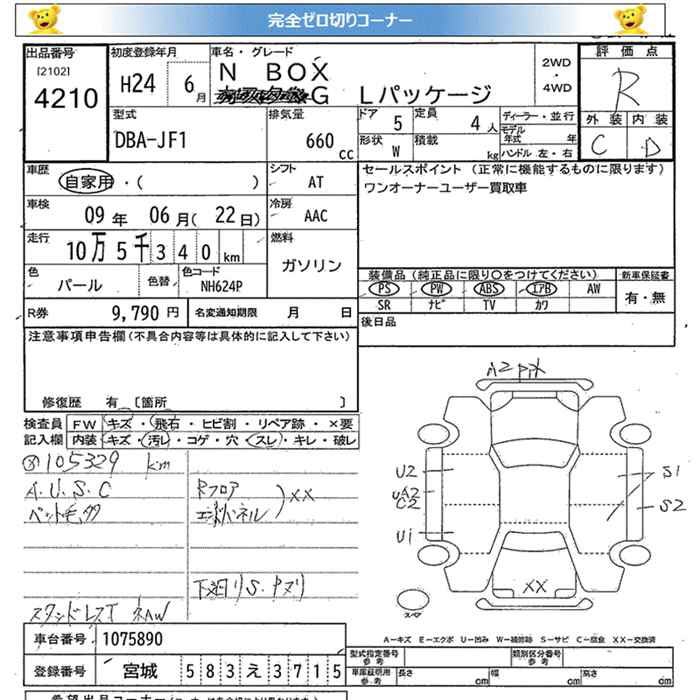 完全ゼロ切りコーナー
出品番号
[2102]
4210
初度登録年月
H24 6月
車名・グレード
N BOX
G Lパッケージ
2WD
・
4WD
評価点
R
外装 内装
C D
型式
DBA-JF1
排気量
660 cc
ドア 5
定員 4人
形状 W
積載 kg
ディーラー・並行
モデル年式 年
ハンドル 左・右
車歴
自家用・( )
シフト
AT
セールスポイント (正常に機能するものに限ります)
ワンオーナーユーザー買取車
車検
09年 06月( 22日)
冷房
AAC
走行
10万5千340km
燃料
ガソリン
色
パール
色替
色コード
NH624P
装備品 (純正品に限り〇をつけてください)
新車保証書
PS PW ABS エアB AW
有・無
SR ナビ TV カワ
R券 9,790円
名変通知期限 月 日
後日品
注意事項申告欄(不具合内容等は具体的に記入して下さい)
修復歴 有 [箇所 ]
検査員記入欄
FW キズ・飛石・ヒビ割・リペア跡・×要
内装 キズ・汚レ・コゲ・穴・スレ・キレ・破レ
105329 km
A.U.S.C
ペット毛多
Rフロア
XX
下廻りS.
A2
U2
UA2
C2
U1
S1
S2
XX
スペア
A-キズ E-エクボ U-凹み W-補修跡 S-サビ C-腐食 XX-交換済
車台番号 1075890
登録番号 宮城 583え3715
型式指定番号
参考
類別区分番号
参考
車庫証明用
参考
長さ cm 幅 cm 高さ cm